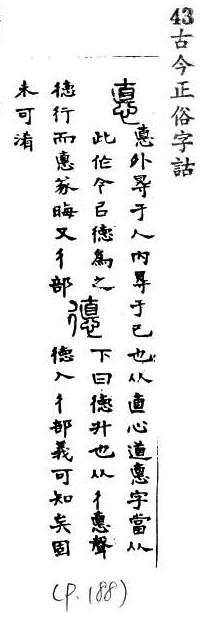 43古今正俗字詁
悳 悳外㝵于人內㝵于己也从直心道悳字當从
此作今㠯德爲之 德 下曰德升也从彳悳聲
德行而悳篆晦又彳部 德入彳部義可知矣固
未可淆
(P.188)